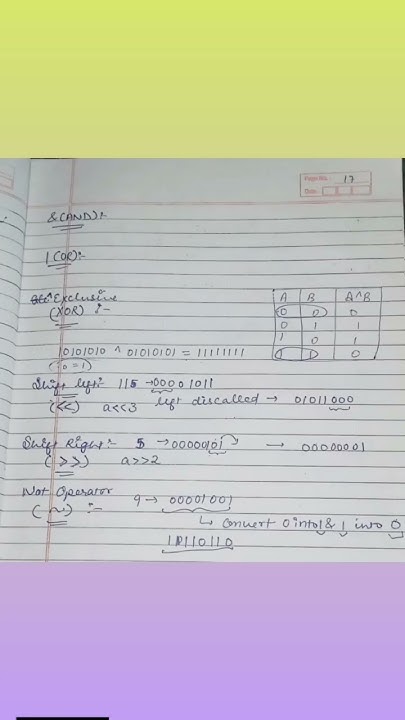 Page No. 17
Date
& (AND):-
| (OR):-
^ Exclusive
(XOR) :-
A B A^B
0 0 0
0 1 1
1 0 1
1 1 0
10101010 ^ 01010101 = 11111111
Shift left:- 115 → 00001011
(<<) a<<3 left discalled → 01011000
Shift Right:- 5 → 00000101 → 00000001
(>>) a>>2
Not Operator
(~) :- 9 → 00001001
↳ Convert 0 into 1 & 1 into 0
11110110